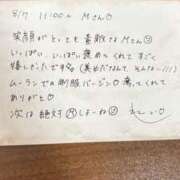 8/7 11:00〜 Mさん♡
笑顔がとっても素敵なMさん☺
いっぱい、いっぱい褒めてくれて すごく
嬉しかったです
ムーランでの制服バージン♡ 奪ってくれて
ありがと♡
次は絶対 しよーね